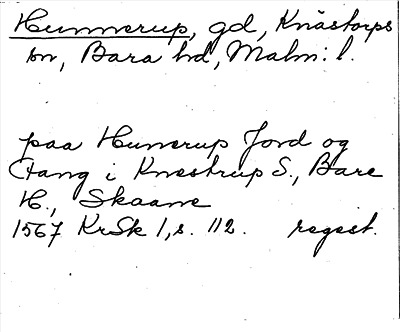 Hunnerup, gd, Knästorps
sn, Bara hd, Malm: l.
paa Hunnerup Jord og
Fang i Knestrup S., Bare
H., Skaane
1567 KrSk 1, s. 112. regest.